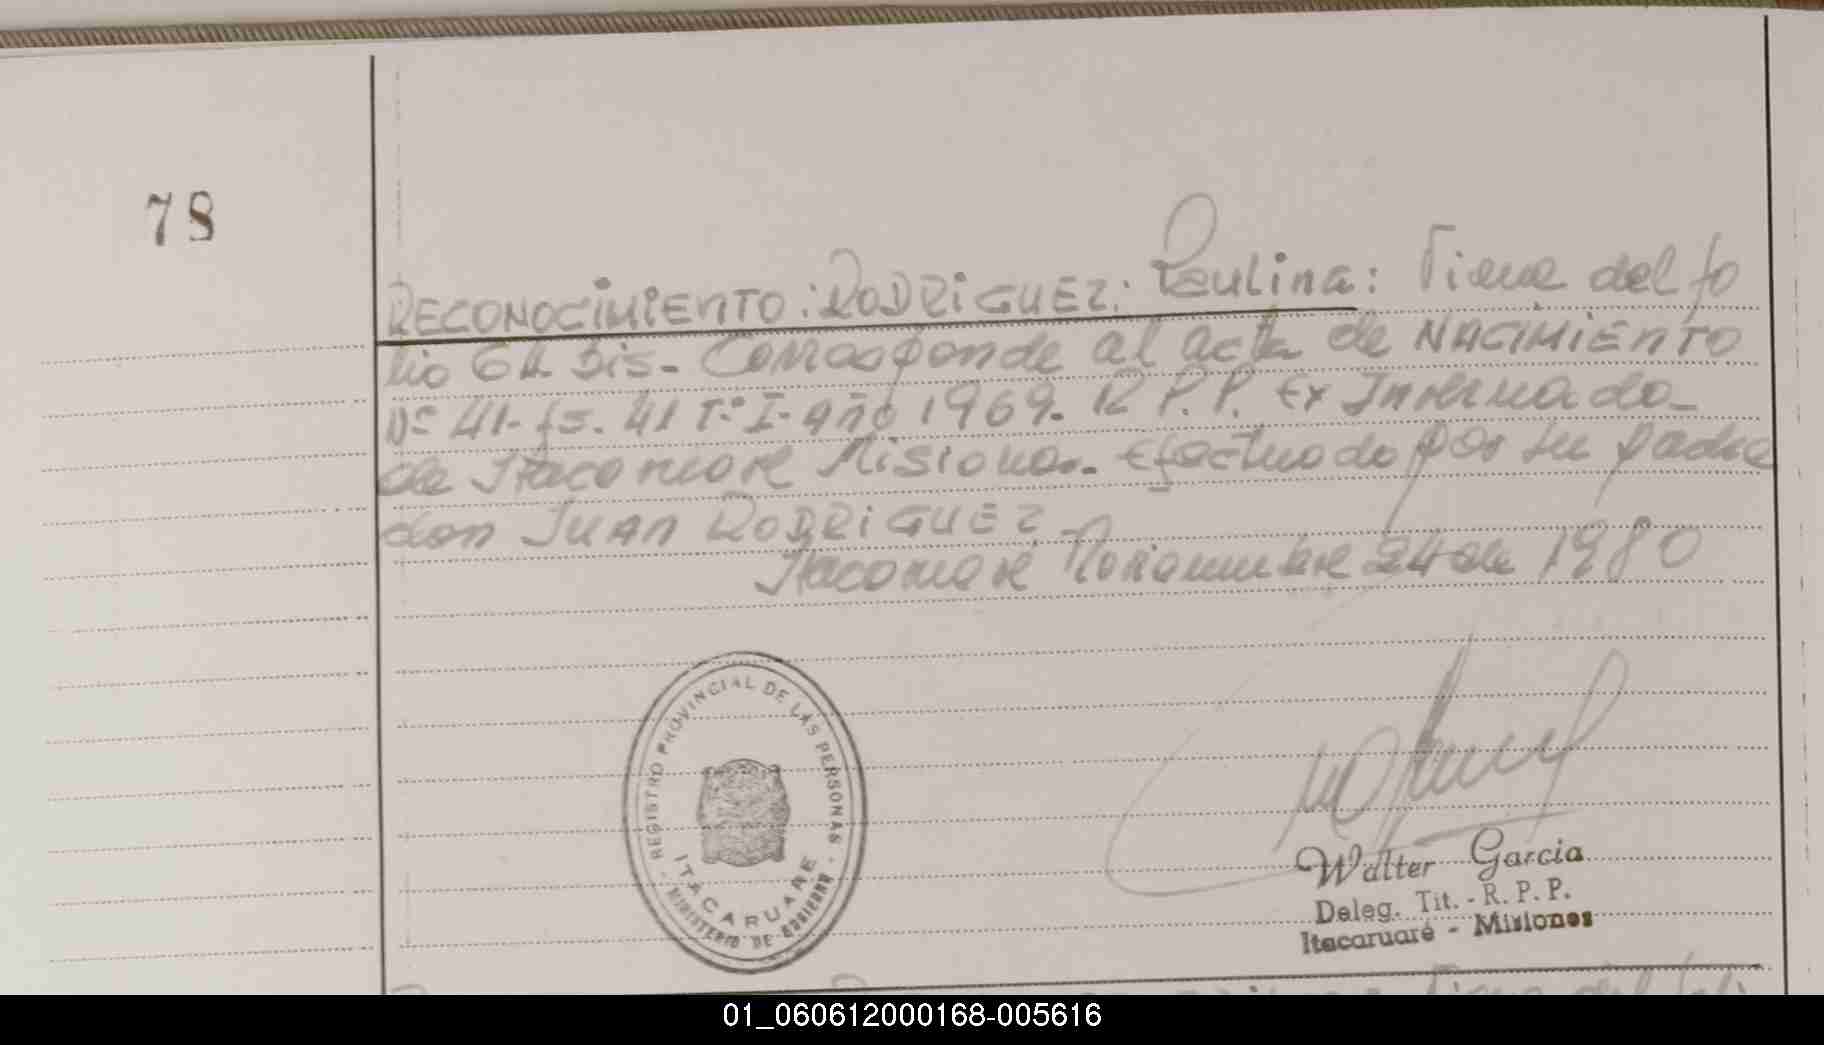 78
RECONOCIMIENTO: RODRIGUEZ: Paulina: Viene del fo
lio 64 Bis.- Corresponde al acta de NACIMIENTO
Nº 41- fs. 41 T.º I- año 1969. R P.P. Ex Intermado-
de Itacaruare Misiones.- Efectuado por su padre
don JUAN RODRIGUEZ
Itacaruaré Noviembre 24 de 1980
REGISTRO PROVINCIAL DE LAS PERSONAS
ITACARUARE
MINISTERIO DE GOBIERNO
Walter Garcia
Deleg. Tit. - R. P. P.
Itacaruaré - Misiones
01_060612000168-005616